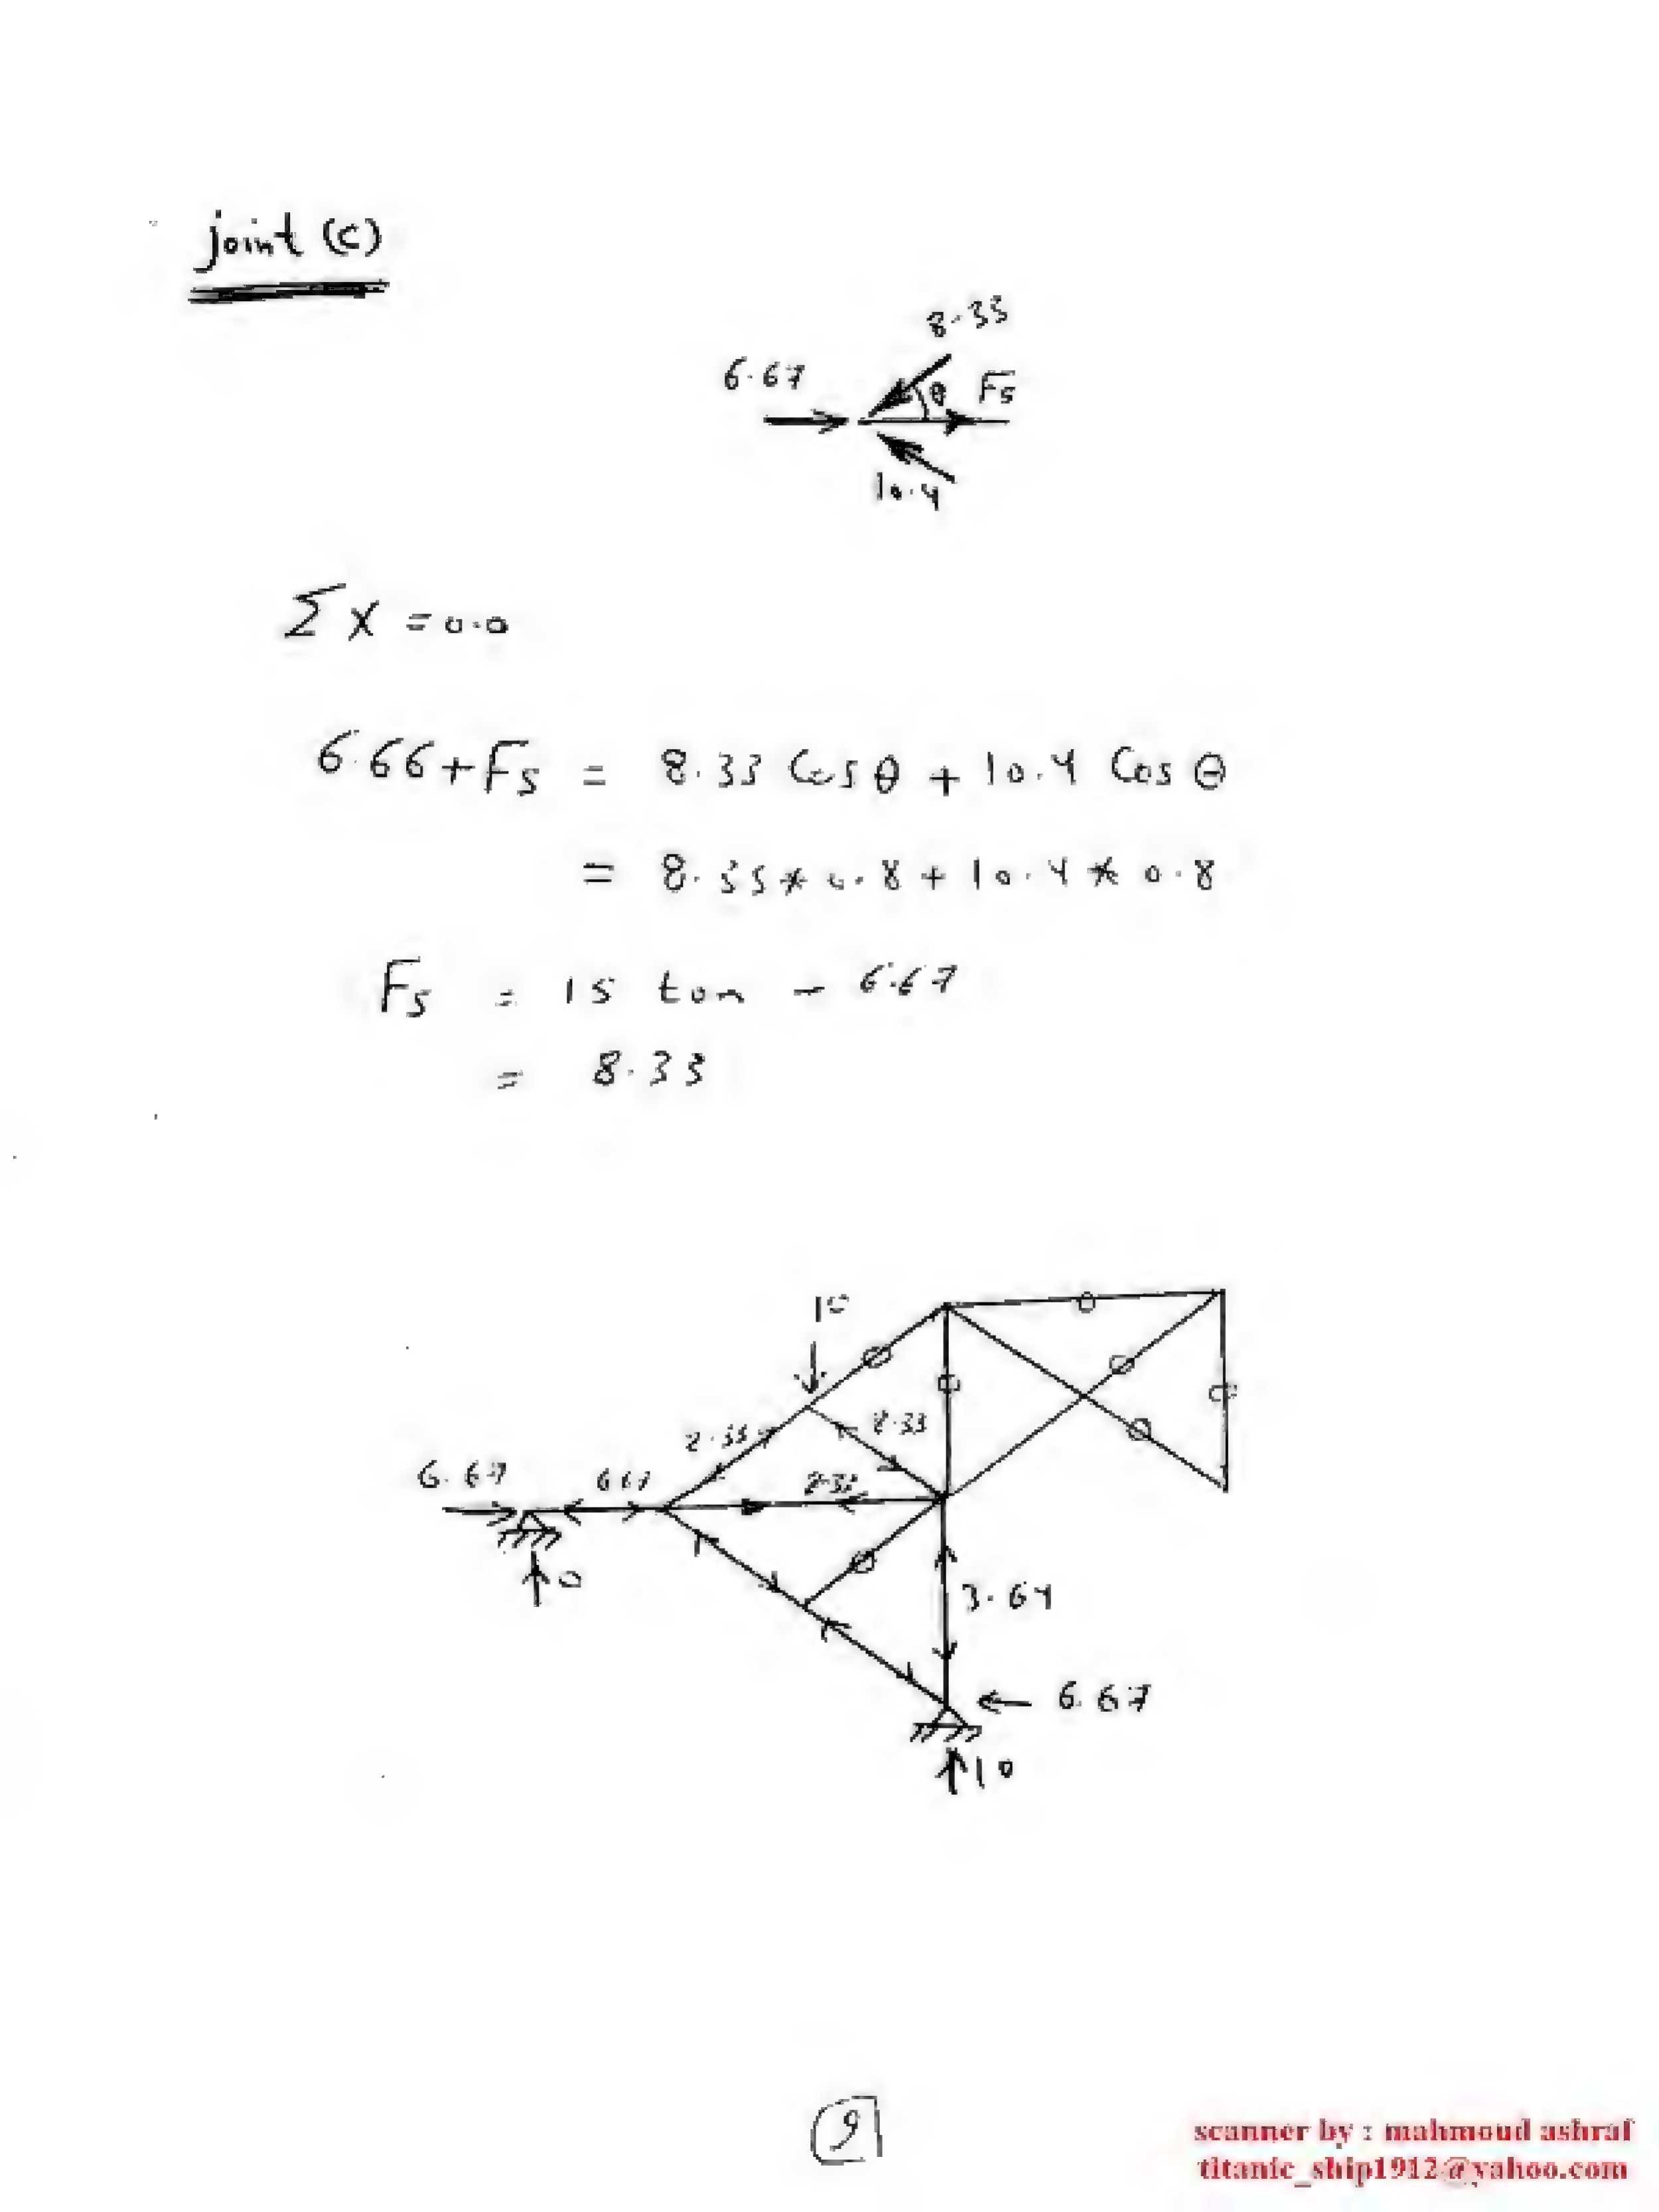 joint (c)
8.33
6.67
θ
F5
10.4
Σ X = 0.0
6.66 + F5 = 8.33 Cos θ + 10.4 Cos θ
= 8.33 * 0.8 + 10.4 * 0.8
F5 = 15 ton - 6.67
= 8.33
10
8.33
8.33
6.67
6.67
8.33
0
3.64
6.67
10
9
scanner by : mahmoud ashraf
titanic_ship1912@yahoo.com